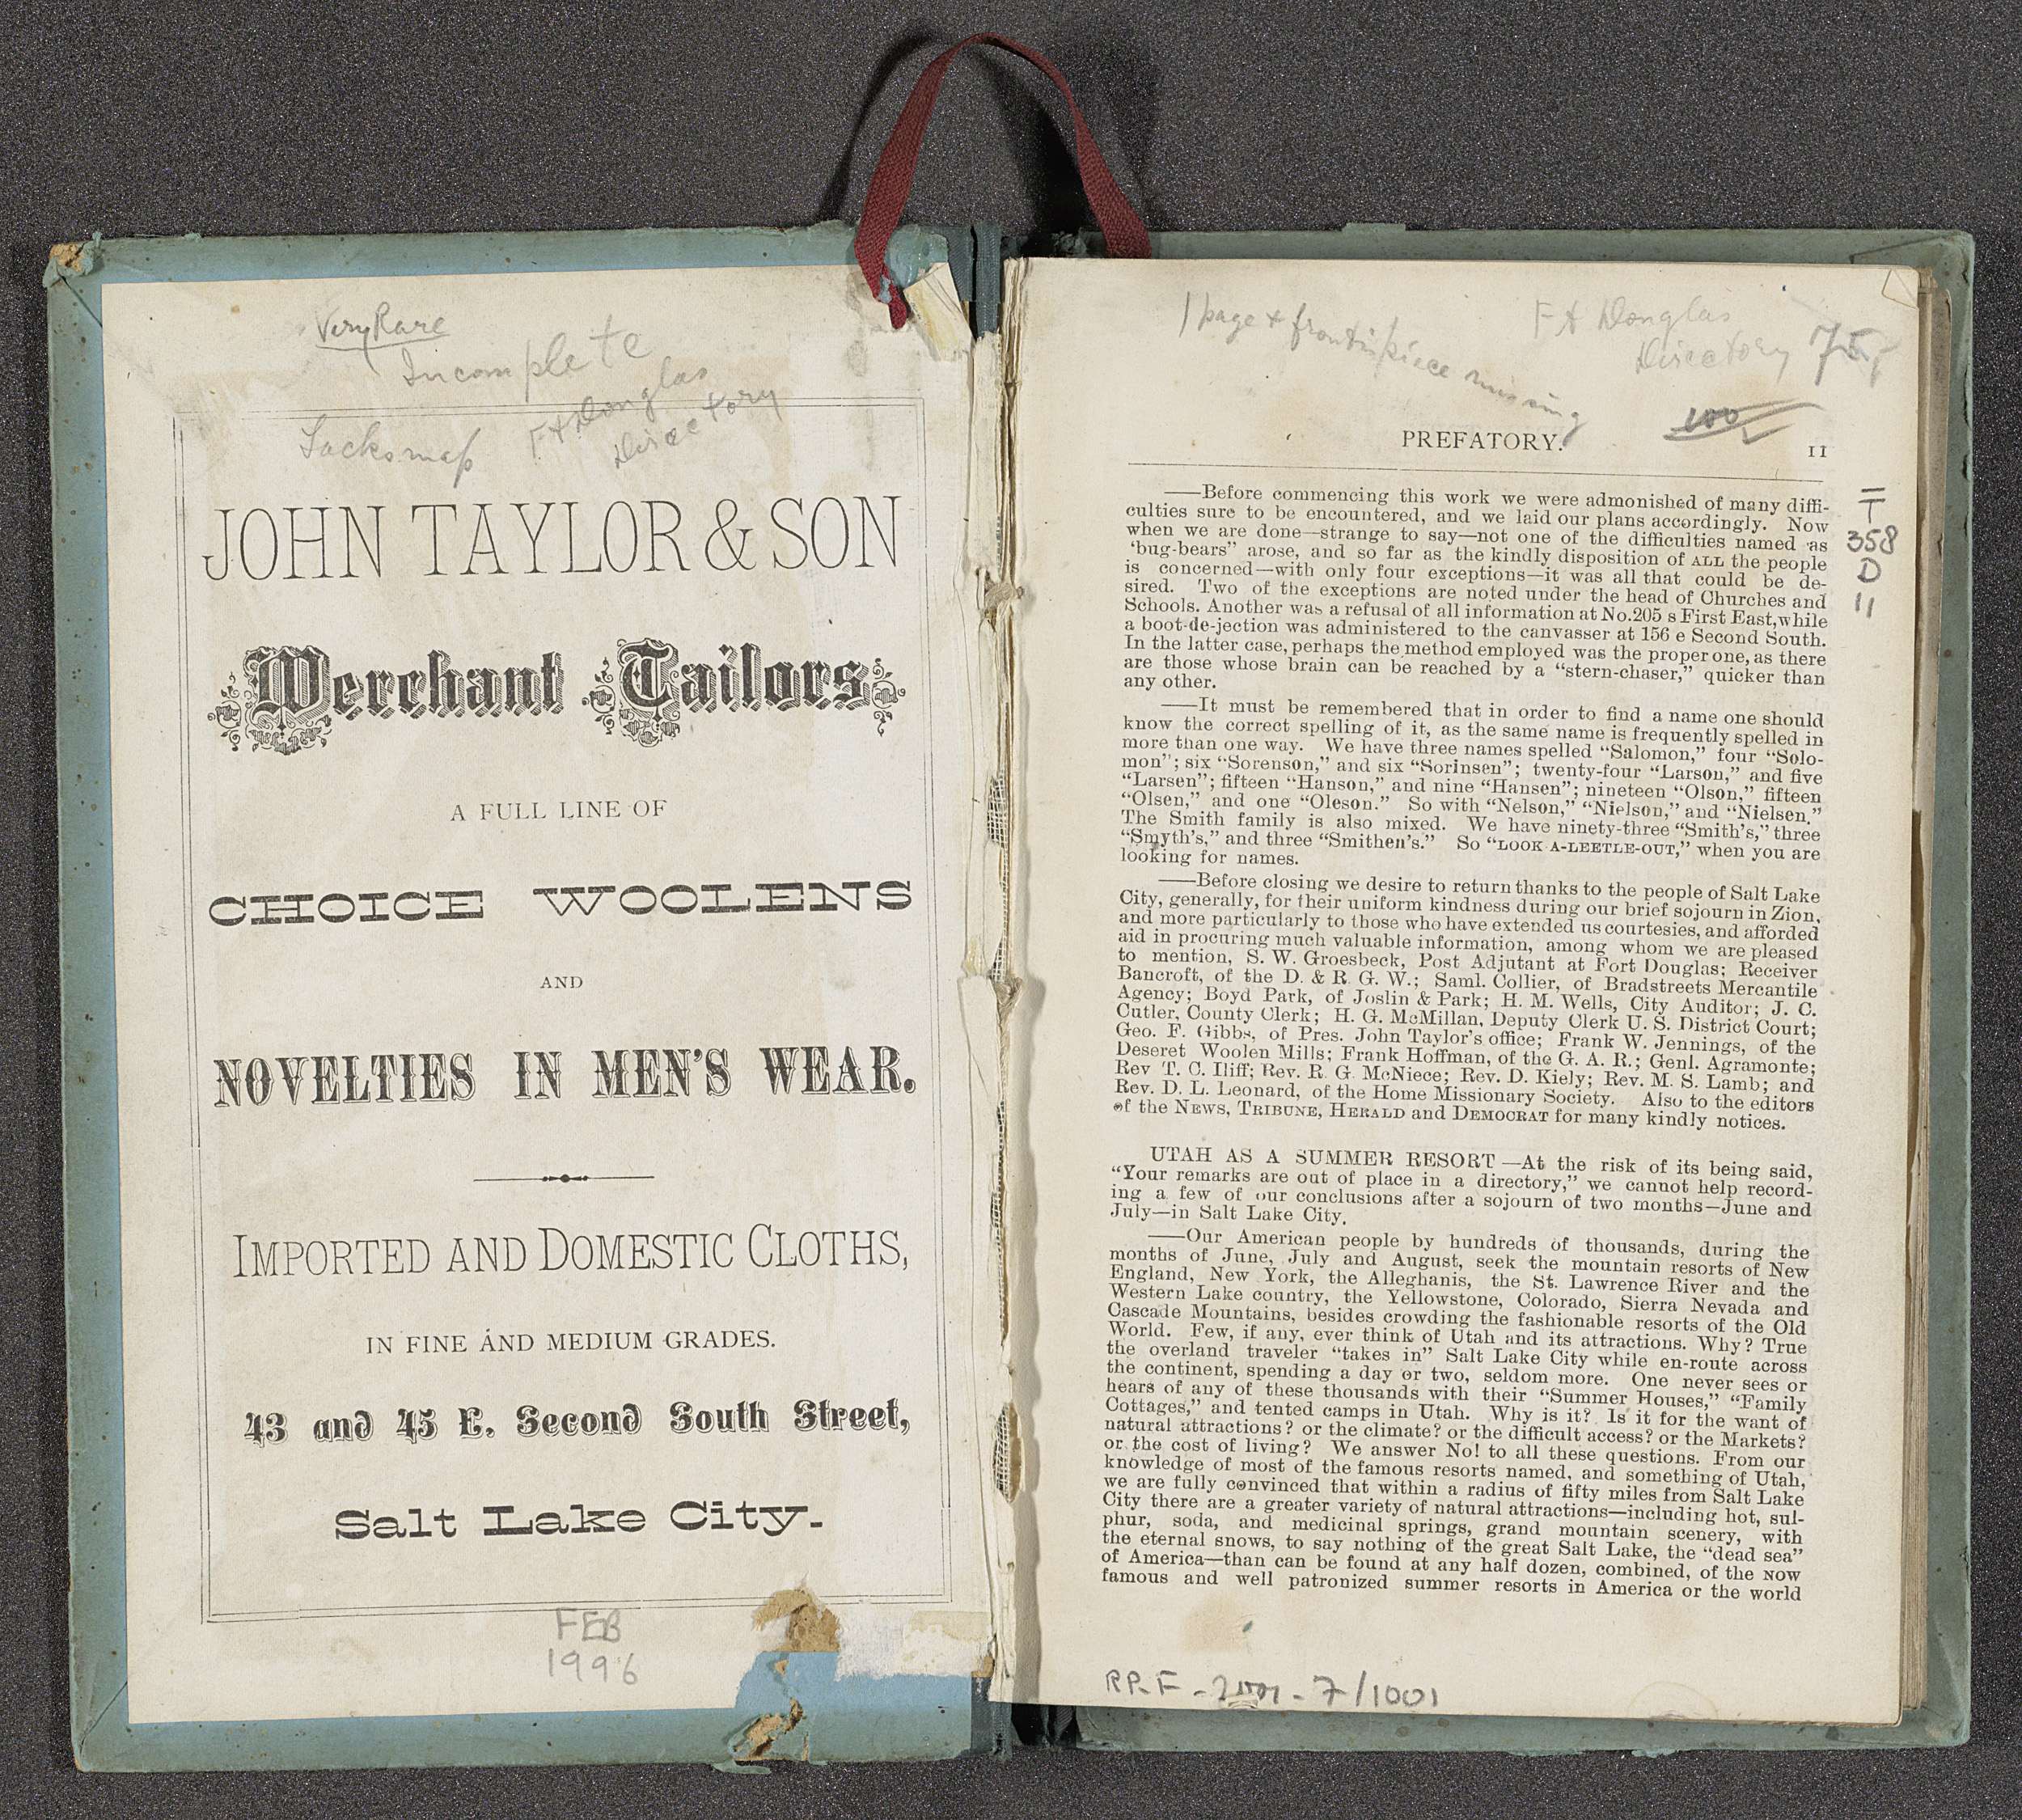 Very Rare
Incomplete
Lacks map
Ft Douglas
Directory
JOHN TAYLOR & SON
Merchant Tailors
A FULL LINE OF
CHOICE WOOLENS
AND
NOVELTIES IN MEN'S WEAR.
IMPORTED AND DOMESTIC CLOTHS,
IN FINE AND MEDIUM GRADES.
43 and 45 E. Second South Street,
Salt Lake City.
FEB
1996
1 page & frontispiece missing
Ft Douglas
Directory
100
PREFATORY.
11
——Before commencing this work we were admonished of many diffi-
culties sure to be encountered, and we laid our plans accordingly. Now
when we are done—strange to say—not one of the difficulties named as
'bug-bears" arose, and so far as the kindly disposition of ALL the people
is concerned—with only four exceptions—it was all that could be de-
sired. Two of the exceptions are noted under the head of Churches and
Schools. Another was a refusal of all information at No. 205 s First East, while
a boot-de-jection was administered to the canvasser at 156 e Second South.
In the latter case, perhaps the method employed was the proper one, as there
are those whose brain can be reached by a "stern-chaser," quicker than
any other.
——It must be remembered that in order to find a name one should
know the correct spelling of it, as the same name is frequently spelled in
more than one way. We have three names spelled "Salomon," four "Solo-
mon"; six "Sorenson," and six "Sorinsen"; twenty-four "Larson," and five
"Larsen"; fifteen "Hanson," and nine "Hansen"; nineteen "Olson," fifteen
"Olsen," and one "Oleson." So with "Nelson," "Nielson," and "Nielsen."
The Smith family is also mixed. We have ninety-three "Smith's," three
"Smyth's," and three "Smithen's." So "LOOK A-LEETLE-OUT," when you are
looking for names.
——Before closing we desire to return thanks to the people of Salt Lake
City, generally, for their uniform kindness during our brief sojourn in Zion,
and more particularly to those who have extended us courtesies, and afforded
aid in procuring much valuable information, among whom we are pleased
to mention, S. W. Groesbeck, Post Adjutant at Fort Douglas; Receiver
Bancroft, of the D. & R. G. W.; Saml. Collier, of Bradstreets Mercantile
Agency; Boyd Park, of Joslin & Park; H. M. Wells, City Auditor; J. C.
Cutler, County Clerk; H. G. McMillan, Deputy Clerk U. S. District Court;
Geo. F. Gibbs, of Pres. John Taylor's office; Frank W. Jennings, of the
Deseret Woolen Mills; Frank Hoffman, of the G. A. R.; Genl. Agramonte;
Rev T. C. Iliff; Rev. R. G. McNiece; Rev. D. Kiely; Rev. M. S. Lamb; and
Rev. D. L. Leonard, of the Home Missionary Society. Also to the editors
of the NEWS, TRIBUNE, HERALD and DEMOCRAT for many kindly notices.
UTAH AS A SUMMER RESORT—At the risk of its being said,
"Your remarks are out of place in a directory," we cannot help record-
ing a few of our conclusions after a sojourn of two months—June and
July—in Salt Lake City.
——Our American people by hundreds of thousands, during the
months of June, July and August, seek the mountain resorts of New
England, New York, the Alleghanis, the St. Lawrence River and the
Western Lake country, the Yellowstone, Colorado, Sierra Nevada and
Cascade Mountains, besides crowding the fashionable resorts of the Old
World. Few, if any, ever think of Utah and its attractions. Why? True
the overland traveler "takes in" Salt Lake City while en-route across
the continent, spending a day or two, seldom more. One never sees or
hears of any of these thousands with their "Summer Houses," "Family
Cottages," and tented camps in Utah. Why is it? Is it for the want of
natural attractions? or the climate? or the difficult access? or the Markets?
or the cost of living? We answer No! to all these questions. From our
knowledge of most of the famous resorts named, and something of Utah,
we are fully convinced that within a radius of fifty miles from Salt Lake
City there are a greater variety of natural attractions—including hot, sul-
phur, soda, and medicinal springs, grand mountain scenery, with
the eternal snows, to say nothing of the great Salt Lake, the "dead sea"
of America—than can be found at any half dozen, combined, of the now
famous and well patronized summer resorts in America or the world
T
358
D
11
RP-F-2001-7/1001